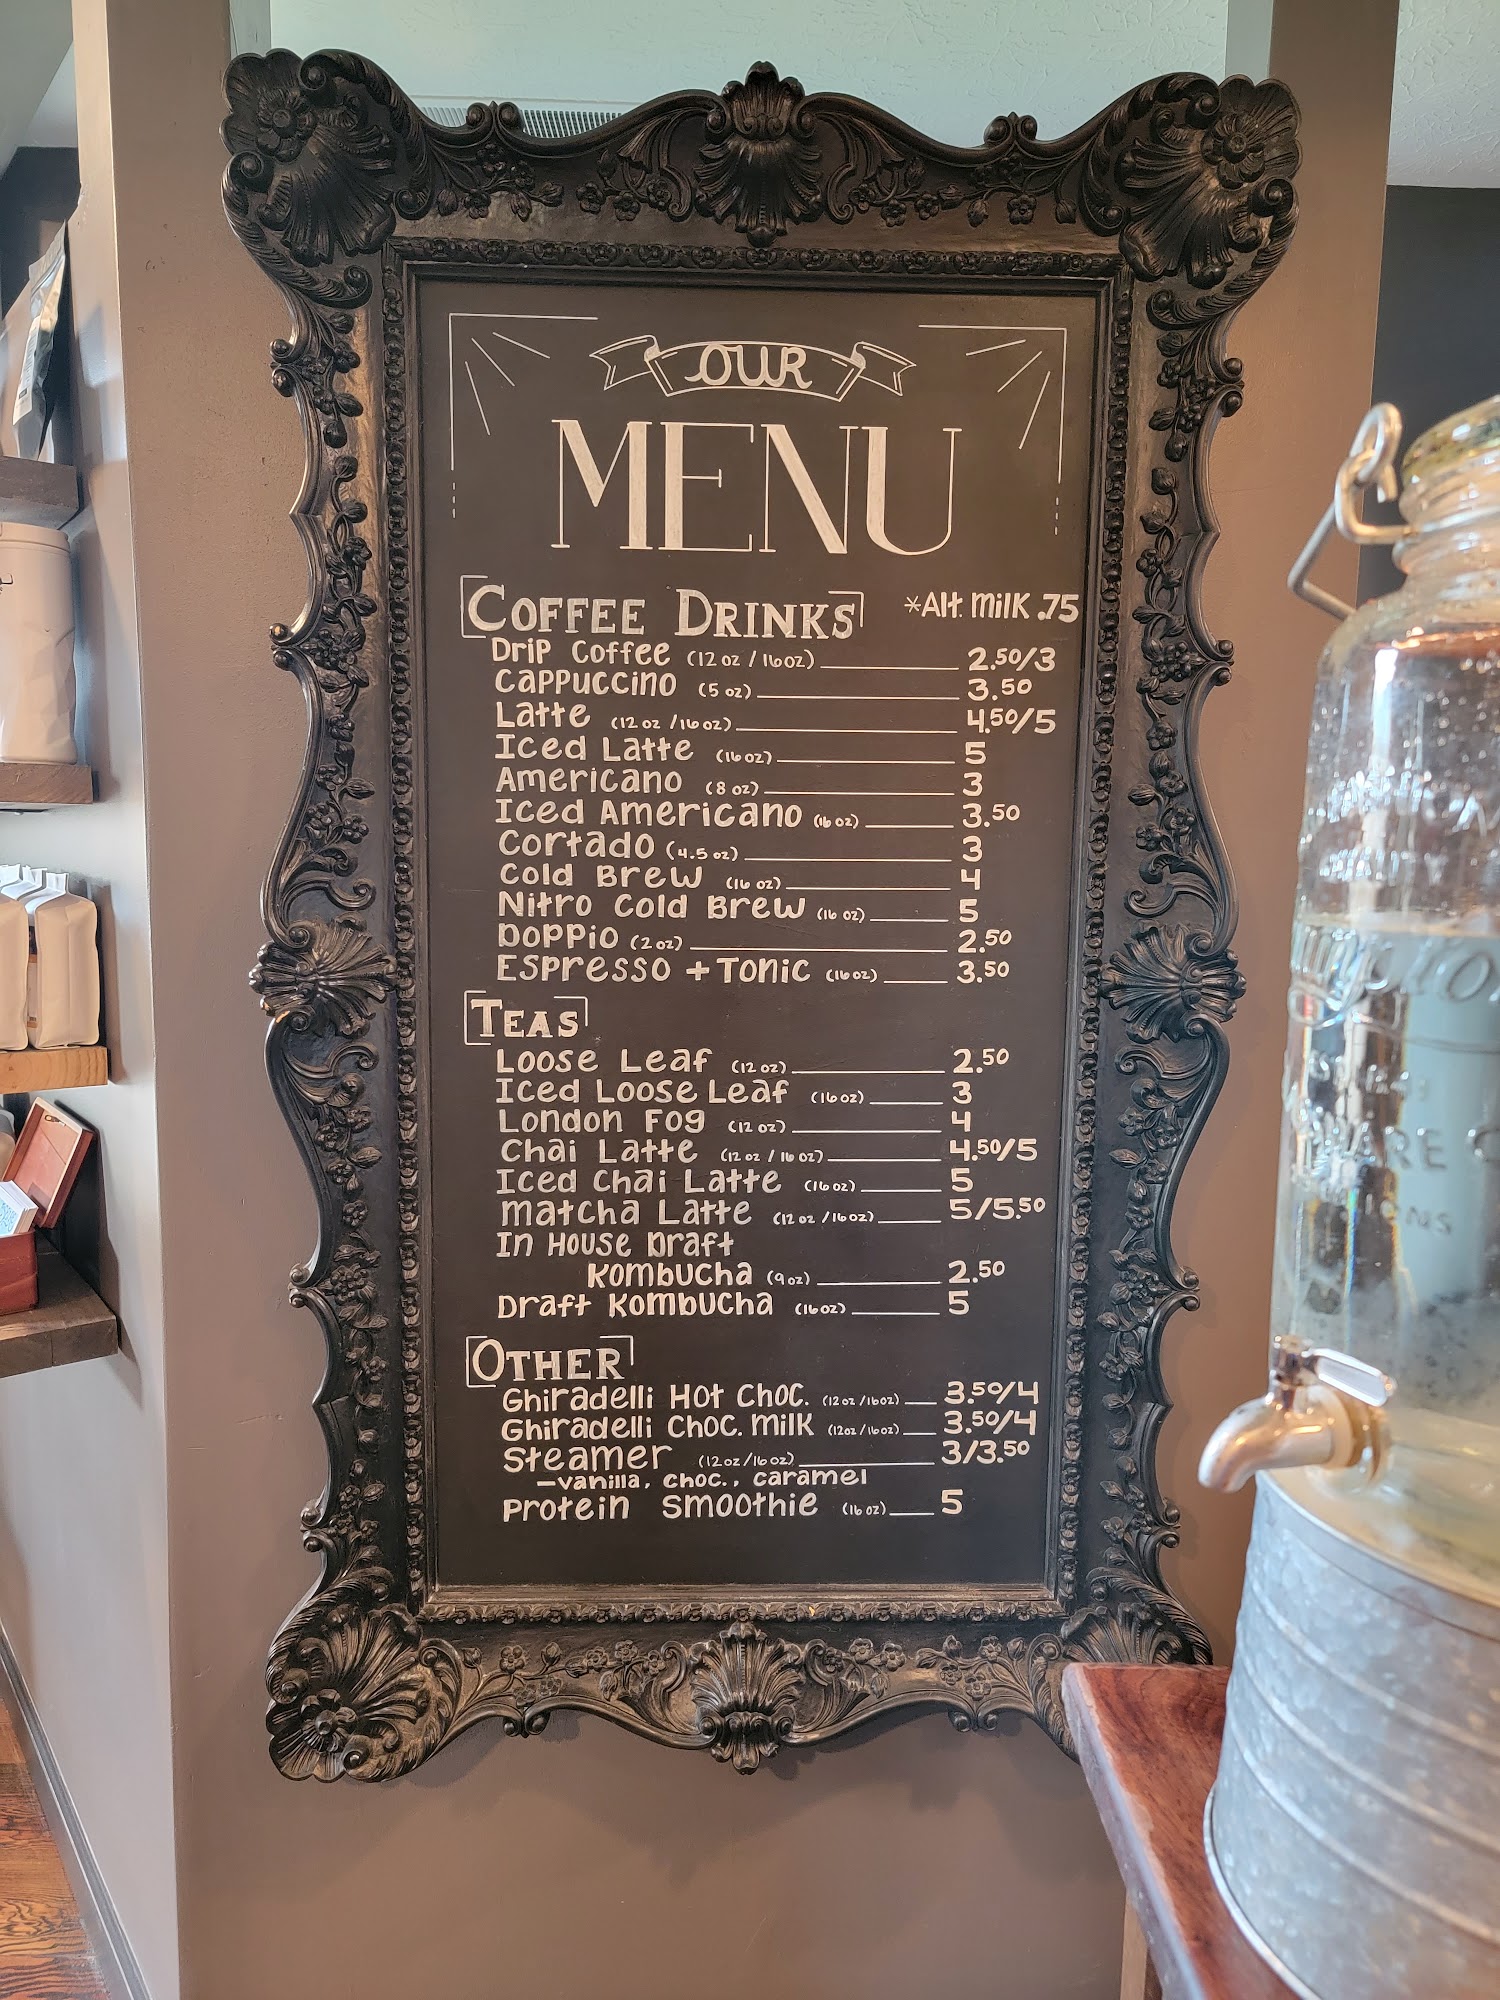 OUR
MENU
COFFEE DRINKS *Alt. Milk .75
Drip Coffee (12 oz / 16 oz) 2.50/3
Cappuccino (5 oz) 3.50
Latte (12 oz / 16 oz) 4.50/5
Iced Latte (16 oz) 5
Americano (8 oz) 3
Iced Americano (16 oz) 3.50
Cortado (4.5 oz) 3
Cold Brew (16 oz) 4
Nitro Cold Brew (16 oz) 5
Doppio (2 oz) 2.50
Espresso + Tonic (16 oz) 3.50
TEAS
Loose Leaf (12 oz) 2.50
Iced Loose Leaf (16 oz) 3
London Fog (12 oz) 4
Chai Latte (12 oz / 16 oz) 4.50/5
Iced Chai Latte (16 oz) 5
Matcha Latte (12 oz / 16 oz) 5/5.50
In House Draft
Kombucha (9 oz) 2.50
Draft Kombucha (16 oz) 5
OTHER
Ghiradelli Hot Choc. (12 oz / 16 oz) 3.50/4
Ghiradelli Choc. Milk (12 oz / 16 oz) 3.50/4
Steamer (12 oz / 16 oz) 3/3.50
-vanilla, choc., caramel
Protein Smoothie (16 oz) 5